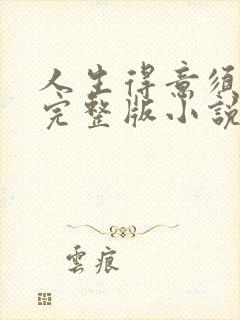 人生得意須
完整版小說
雲痕